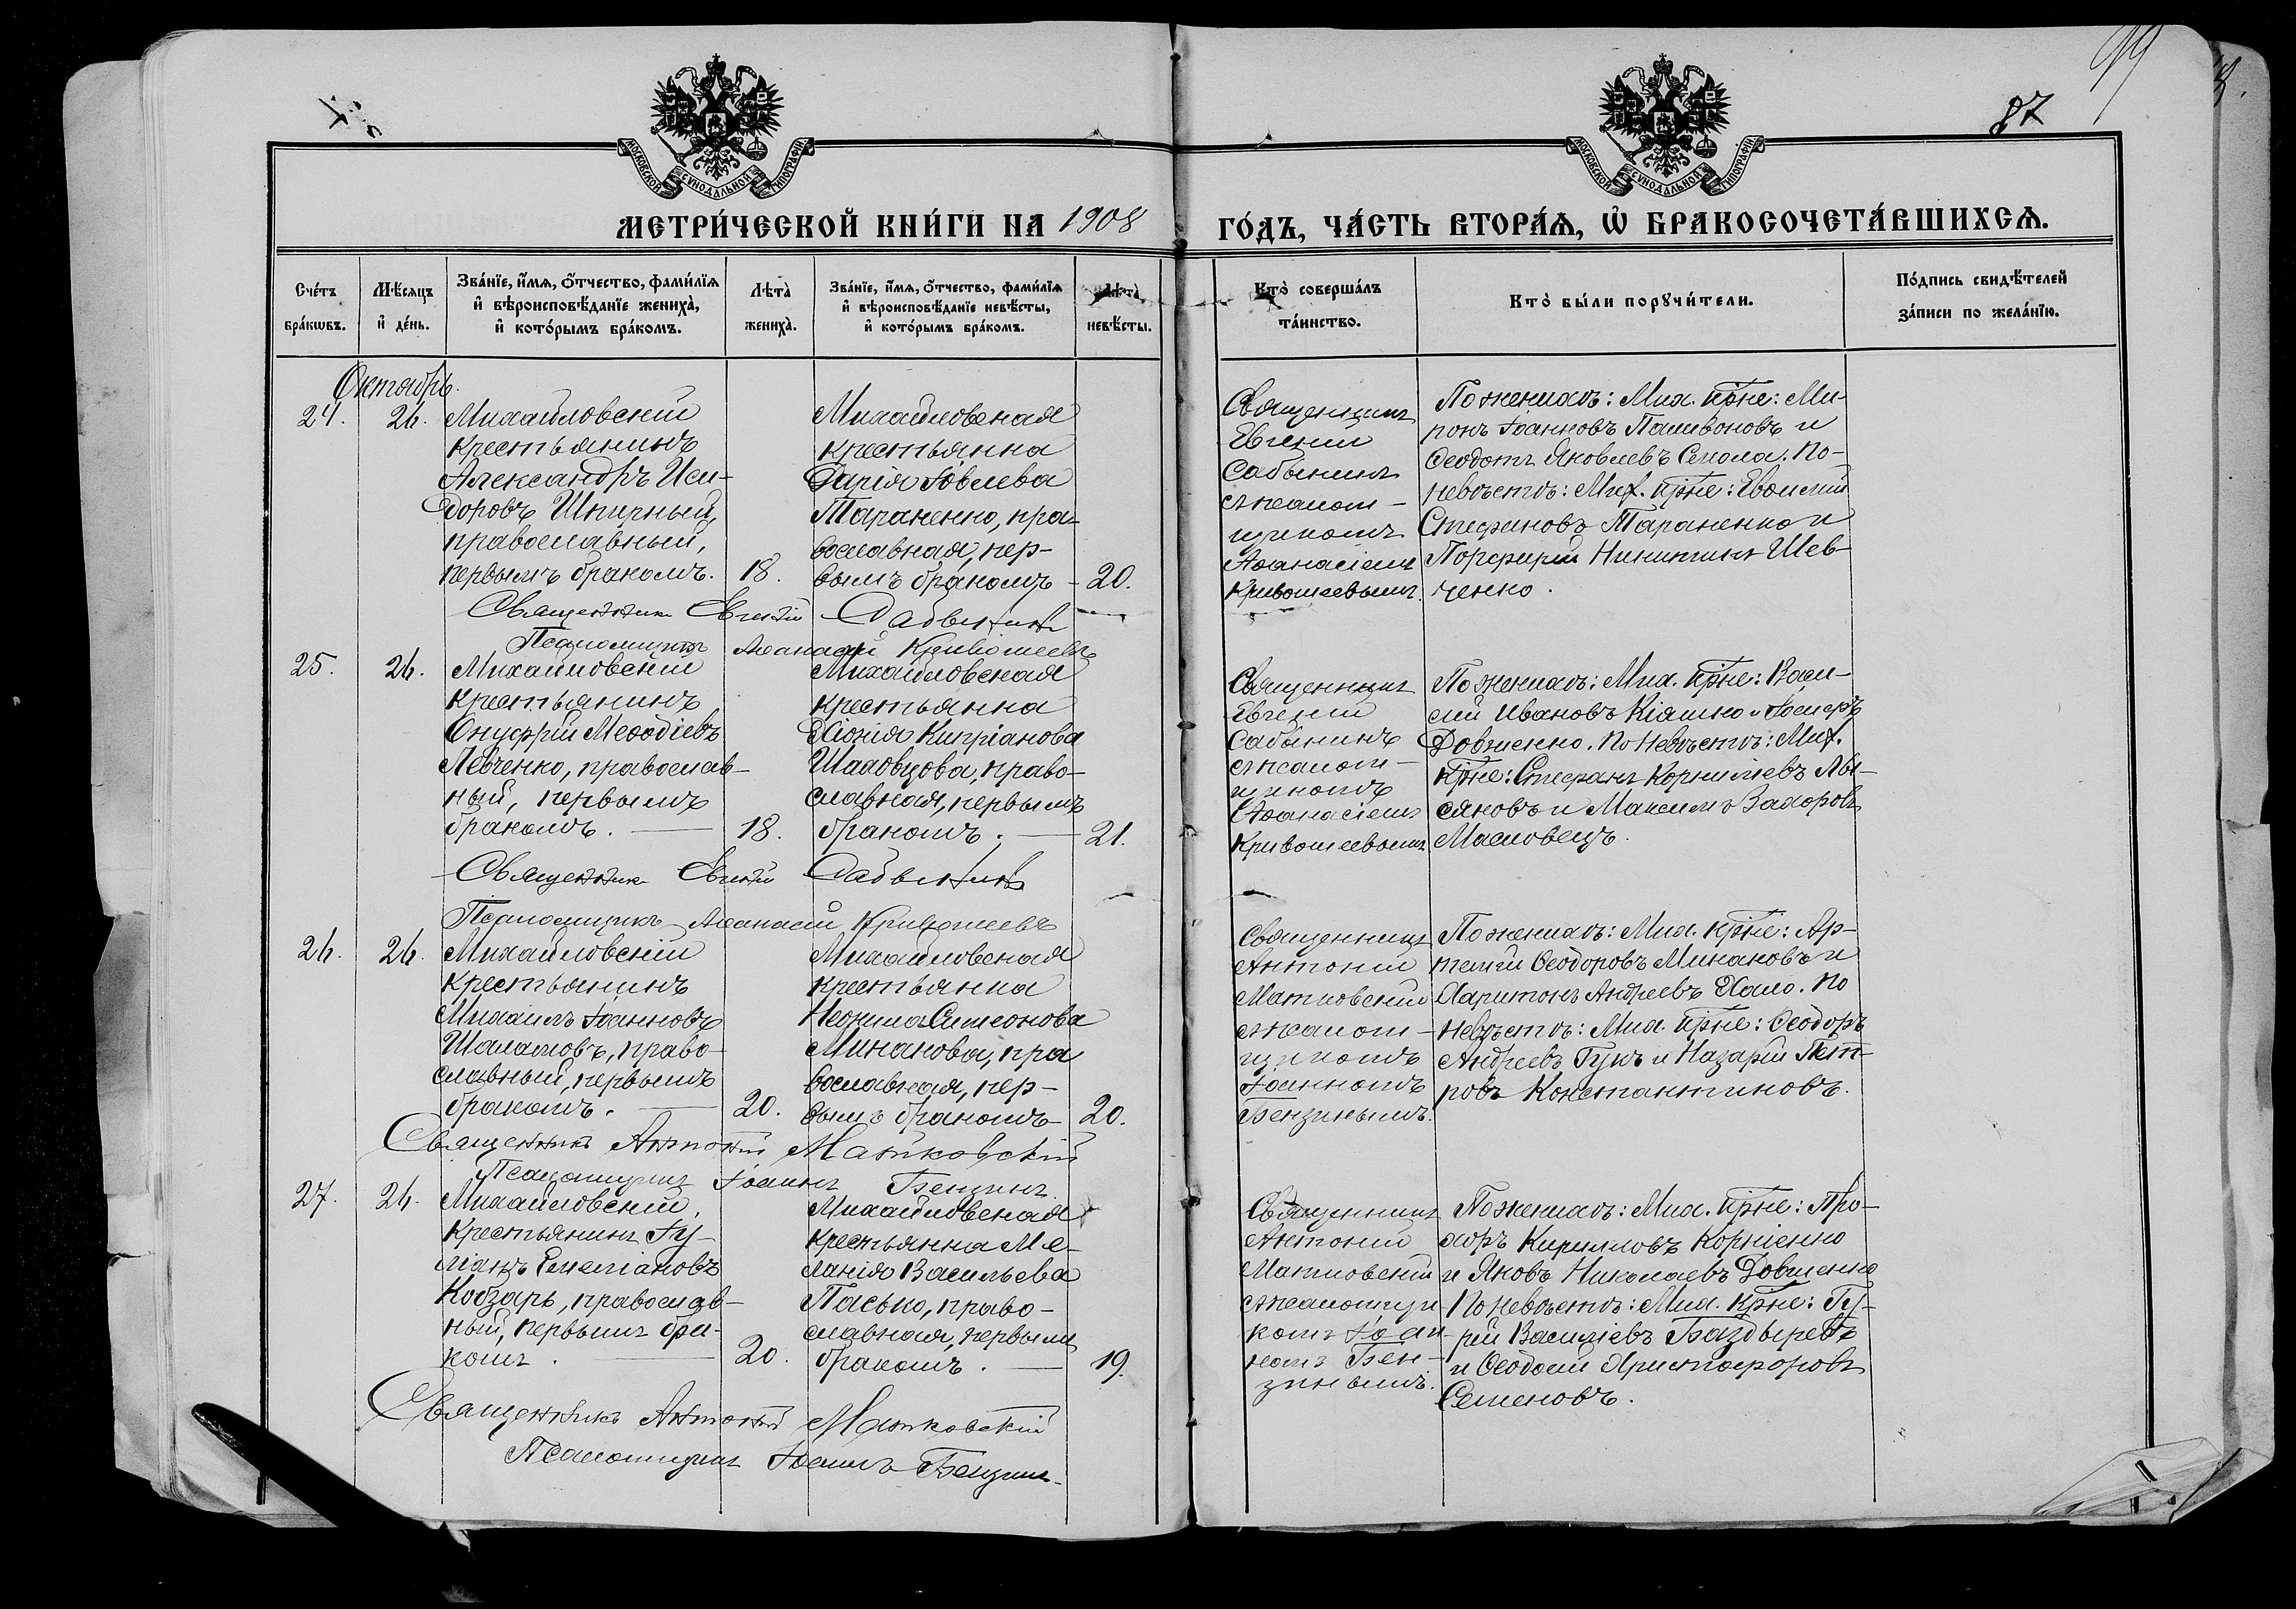 99
87
МОСКОВСКОЙ СУНОДАЛЬНОЙ ТИПОГРАФІИ
МОСКОВСКОЙ СУНОДАЛЬНОЙ ТИПОГРАФІИ
МЕТРИ́ЧЕСКОЙ КНИ́ГИ НА 1908 ГО́ДЪ, ЧА́СТЬ ВТОРА́Я, Ѡ БРАКОСОЧЕТА́ВШИХСЯ.
Сче́тъ
бра́кѡвъ.
Мѣ́сяцъ
и҆ де́нь.
Зва́нїе, и҆́мя, ѻ҆́тчество, фами́лїя
и҆ вѣроисповѣ́данїе жениха̀,
и҆ кото́рымъ бра́комъ.
Лѣта̀
жениха̀.
Зва́нїе, и҆́мя, ѻ҆́тчество, фами́лїя
и҆ вѣроисповѣ́данїе невѣ́сты,
и҆ кото́рымъ бра́комъ.
Лѣта̀
невѣ́сты.
Кто̀ соверша́лъ
та́инство.
Кто̀ бы́ли порꙋчи́тели.
По́дпись свидѣ́телей
за́писи по жела́нїю.
Октябрь.
24.
26.
Михайловскій
крестьянинъ
Александръ Иси-
доровъ Шпирный,
православный,
первымъ бракомъ.
18.
Михайловская
крестьянка
Дарія Іовлева
Тараненко, пра-
вославная, пер-
вымъ бракомъ
20.
Священникъ
Евгеній
Сабынинъ
съ псалом-
щикомъ
Аѳанасіемъ
Кривошеевымъ.
По женихѣ: Мих. кр-не: Ми-
ронъ Іоанновъ Паливоновъ и
Ѳеодотъ Яковлевъ Семола. По-
невѣстѣ: Мих. кр-не: Евѳимій
Стефановъ Тараненко и
Порфирій Никитинъ Шев-
ченко.
Священникъ Евгеній Сабынинъ
Псаломщикъ Аѳанасій Кривошеевъ
25.
26.
Михайловскій
крестьянинъ
Онуфрій Меѳодіевъ
Левченко, православ-
ный, первымъ
бракомъ.
18.
Михайловская
крестьянка
Хіонія Кипріанова
Шаховцова, право-
славная, первымъ
бракомъ.
21.
Священникъ
Евгеній
Сабынинъ
съ псалом-
щикомъ
Аѳанасіемъ
Кривошеевымъ
По женихѣ: Мих. кр-не: Васи-
лій Ивановъ Кіяшко и Іосифъ
Довженко. По невѣстѣ: Мих.
кр-не: Стефанъ Корниліевъ Лы-
сяновъ и Максимъ Захаровъ
Масловецъ.
Священникъ Евгеній Сабынинъ
Псаломщикъ Аѳанасій Кривошеевъ
26.
26.
Михайловскій
крестьянинъ
Михаилъ Іоанновъ
Шаламовъ, право-
славный, первымъ
бракомъ.
20.
Михайловская
крестьянка
Неонила Симеонова
Минакова, пра
вославная, пер-
вымъ бракомъ
20.
Священникъ
Антоній
Матковскій
съ псалом-
щикомъ
Іоанномъ
Бензинымъ.
По женихѣ: Мих. кр-не: Ар-
темій Ѳеодоровъ Минаковъ и
Харитонъ Андреевъ Хало. По
невѣстѣ: Мих. кр-не: Ѳеодоръ
Андреевъ Гунъ и Назарій Пет-
ровъ Константиновъ.
Священникъ Антоній Матковскій
Псаломщикъ Іоаннъ Бензинъ.
27.
26.
Михайловскій
крестьянинъ Іу-
ліанъ Емеліановъ
Кобзарь, православ-
ный, первымъ бра-
комъ.
20.
Михайловская
крестьянка Ме-
ланія Васильева
Пасько, право-
славная, первымъ
бракомъ.
19.
Священникъ
Антоній
Матковскій
съ псаломщи-
комъ Іоан-
номъ Бен-
зинымъ.
По женихѣ: Мих. кр-не: Про-
хоръ Кирилловъ Корніенко
и Яковъ Николаевъ Довженко
По невѣстѣ: Мих. кр-не: Гу-
рій Василіевъ Баздыревъ
и Ѳеодосій Христофоровъ
Семеновъ.
Священникъ Антоній Матковскій
Псаломщикъ Іоаннъ Бензинъ.